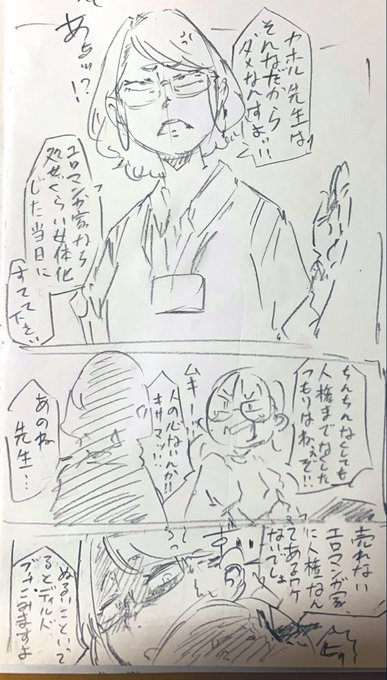 カホル先生は
そんなだから
ダメなんすよぉ!!
あぁッ!?
エロマンガ家なら
処女くらい女体化
した当日に
すててください
ちんちんなくしても
人権までなくした
つもりはねぇぞ!!
ムキー!
人の心ないんか!!
キサマァ!!
あのね
先生…
売れない
エロマンガ家
に人権なん
てあるワケ
ないでしょ
ぬるいこといって
るとディルド
ブチこみますよ